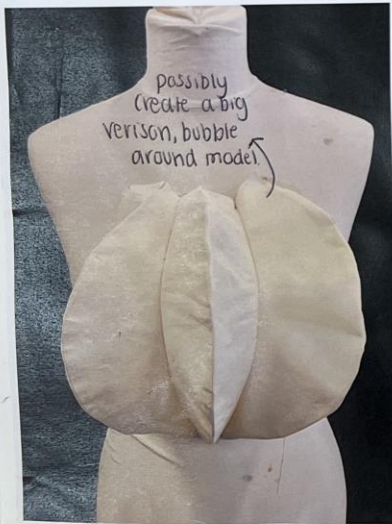 possibly
Create a big
verison, bubble
around model.